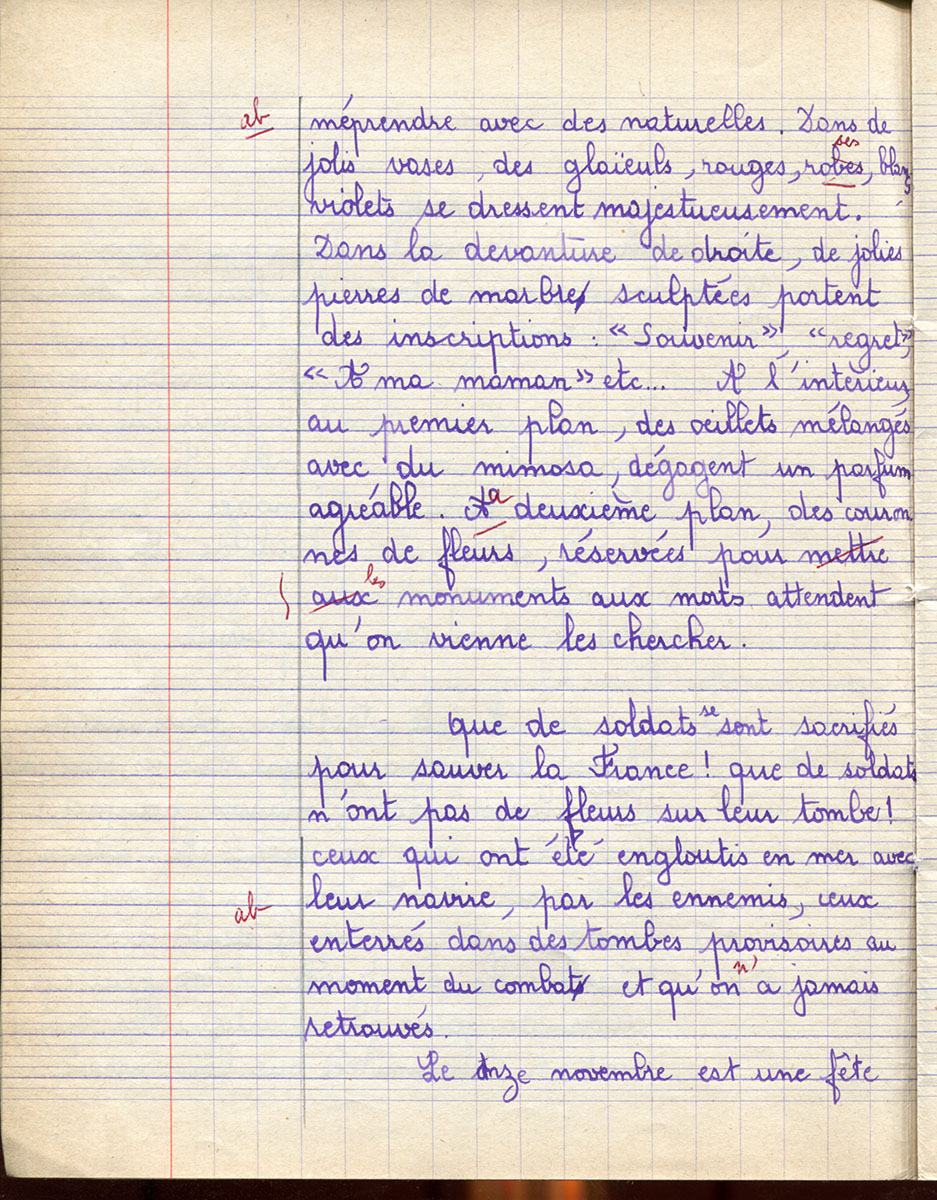 ab méprendre avec des naturelles. Dans de
jolis vases, des glaïeuls, rouges, robes, blancs
ses
violets se dressent majestueusement.
Dans la devanture de droite, de jolies
pierres de marbre sculptées portent
des inscriptions : « Souvenir », « regret »,
« A ma maman » etc... A l'intérieur,
au premier plan, des œillets mélangés
avec du mimosa, dégagent un parfum
agréable. A deuxième plan, des couron
a
nes de fleurs, réservées pour mettre
aux monuments aux morts attendent
les
qu'on vienne les chercher.
Que de soldats se sont sacrifiés
pour sauver la France ! que de soldats
n'ont pas de fleurs sur leur tombe !
ceux qui ont été engloutis en mer avec
ab leur navire, par les ennemis, ceux
enterrés dans des tombes provisoires au
moment du combat et qu'on n'a jamais
retrouvés.
Le onze novembre est une fête